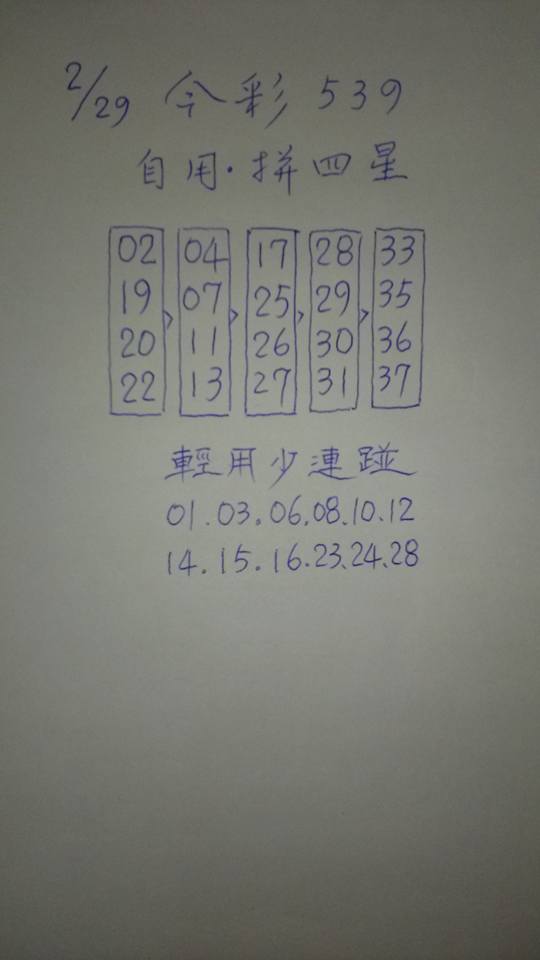 2/29 今彩 539
自用·拼四星
02 04 17 28 33
19 07 25 29 35
20 11 26 30 36
22 13 27 31 37
輕用少連碰
01.03.06.08.10.12
14.15.16.23.24.28